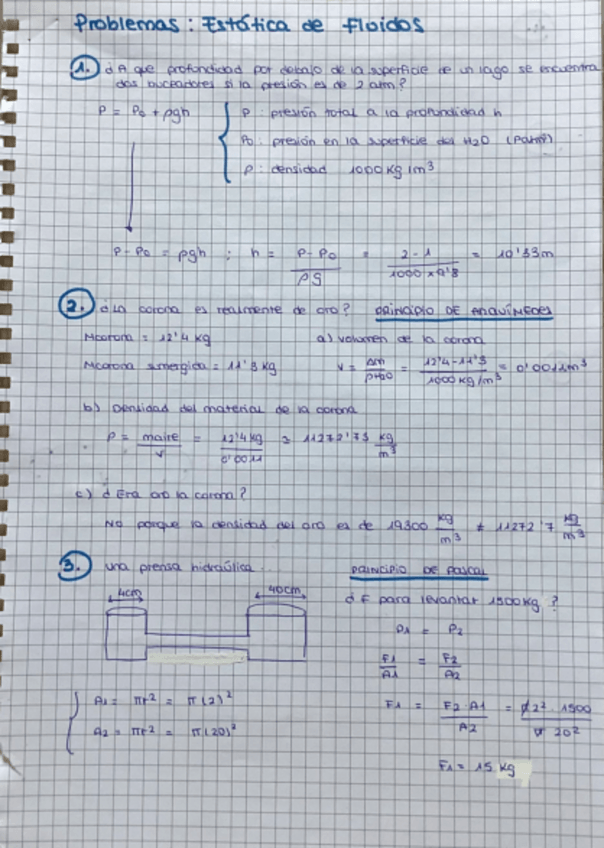 Problemas: Estática de fluidos
1. ¿A que profundidad por debajo de la superficie de un lago se encuentra
dos buceadores si la presión es de 2 atm?
P = P0 + ρgh { P: presión total a la profundidad h
P0: presión en la superficie del H2O (Patm)
ρ: densidad 1000 kg/m³
P - P0 = ρgh ; h = (P - P0)/(ρg) = (2 - 1)/(1000 × 9'8) = 10'33m
2. ¿La corona es realmente de oro? PRINCIPIO DE ARQUÍMEDES
Mcorona = 12'4 kg a) volumen de la corona
Mcorona sumergida = 11'3 kg V = Δm/ρH2O = (12'4 - 11'3)/(1000 kg/m³) = 0'0011m³
b) Densidad del material de la corona
ρ = maire/V = 12'4kg/0'0011 = 11272'73 kg/m³
c) ¿Era oro la corona?
No porque la densidad del oro es de 19300 kg/m³ ≠ 11272'7 kg/m³
3. una prensa hidraúlica... PRINCIPIO DE PASCAL
4cm 40cm ¿F para levantar 1500kg?
P1 = P2
F1/A1 = F2/A2
A1 = πr² = π(2)² F1 = (F2 · A1)/A2 = (π 2² · 1500)/(π 20²)
A2 = πr² = π(20)²
F1 = 15 kg